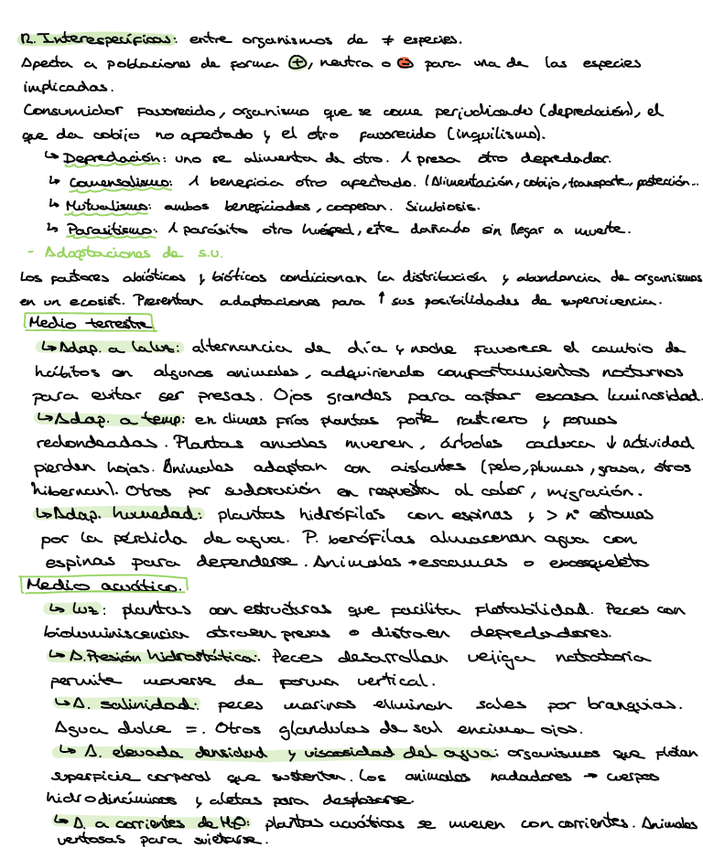 R. Interespecíficas: entre organismos de ≠ especies.
Afecta a poblaciones de forma ⊕, neutra o ⊖ para una de las especies
implicadas.
Consumidor favorecido, organismo que se come perjudicando (depredación), el
que da cobijo no afectado y el otro favorecido (inquilismo).
↳ Depredación: uno se alimenta de otro. 1 presa otro depredador.
↳ Comensalismo: 1 beneficia otro afectado. (Alimentación, cobijo, transporte, protección...
↳ Mutualismo: ambos beneficiados, cooperan. Simbiosis.
↳ Parasitismo: 1 parásito otro huésped, este dañado sin llegar a muerte.
- Adaptaciones de s.v.
Los factores abióticos y bióticos condicionan la distribución y abundancia de organismos
en un ecosist. Presentan adaptaciones para ↑ sus posibilidades de supervivencia.
Medio terrestre
↳ Adap. a la luz: alternancia de día y noche favorece el cambio de
hábitos en algunos animales, adquiriendo comportamientos nocturnos
para evitar ser presas. Ojos grandes para captar escasa luminosidad.
↳ Adap. a temp: en climas fríos plantas porte rastrero y formas
redondeadas. Plantas anuales mueren, árboles caduca ↓ actividad
pierden hojas. Animales adaptan con aislantes (pelo, plumas, grasa, otros
hibernan). Otros por sudoración en respuesta al calor, migración.
↳ Adap. humedad: plantas hidrófilas con espinas y > nº estomas
por la pérdida de agua. P. xerófilas almacenan agua con
espinas para defenderse. Animales → escamas o exoesqueleto
Medio acuático.
↳ luz: plantas con estructuras que facilita flotabilidad. Peces con
bioluminiscencia atraen presas o distraen depredadores.
↳ A. Presión hidrostática: Peces desarrollan vejiga natatoria
permite moverse de forma vertical.
↳ A. salinidad: peces marinos eliminan sales por branquias.
Agua dulce =. Otros glandulas de sal encima ojos.
↳ A. elevada densidad y viscosidad del agua: organismos que flotan
superficie corporal que sustentan. Los animales nadadores → cuerpos
hidrodinámicos y aletas para desplazarse.
↳ A. a corrientes de H₂O: plantas acuáticas se mueven con corrientes. Animales
ventosas para sujetarse.